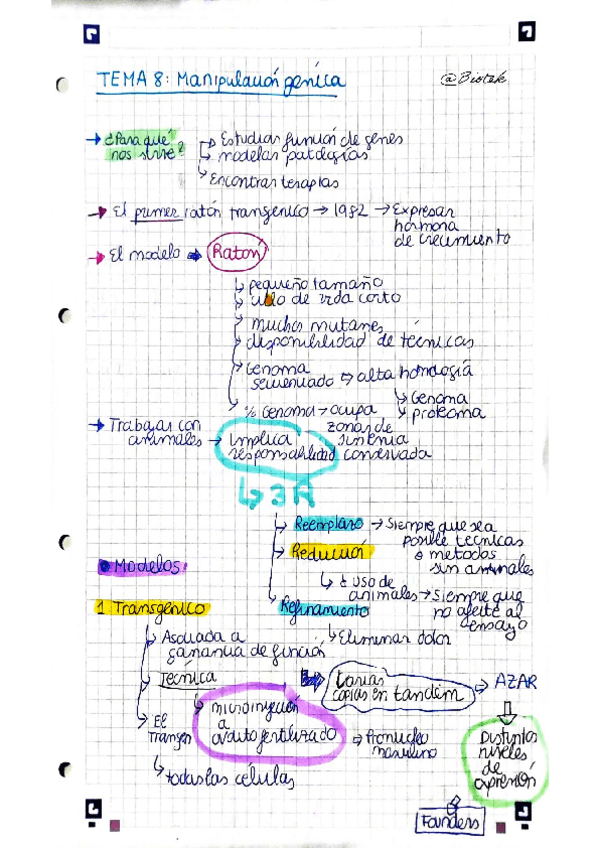 TEMA 8: Manipulación génica
@Biotek
→ ¿Para qué nos sirve?
→ Estudiar función de genes
→ modelar patologías
→ Encontrar terapias
→ El primer ratón transgénico → 1982 → Expresar
hormona
de crecimiento
→ El modelo → Ratón
↳ pequeño tamaño
↳ ciclo de vida corto
↳ muchos mutantes
↳ disponibilidad de técnicas
↳ Genoma
secuenciado ⇨ alta homología
↳ Genoma
↳ proteoma
↳ % Genoma → ocupa
zonas de
sintenia
conservada
→ Trabajar con
animales → implica
responsabilidad
↳ 3 R
→ Reemplazo → Siempre que sea
posible técnicas
o métodos
sin animales
→ Reducción
↳ Uso de
animales → Siempre que
no afecte al
ensayo
→ Refinamiento
↳ Eliminar dolor
Modelos
1 Transgénico
↳ Asociada a
ganancia de función
↳ Técnica
↳ microinyección
a
ovocito fertilizado → Pronúcleo
masculino
varias
copias en tandem → AZAR
Distintos
niveles
de
expresión
Founders
↳ El
Transgen
↳ todas las células